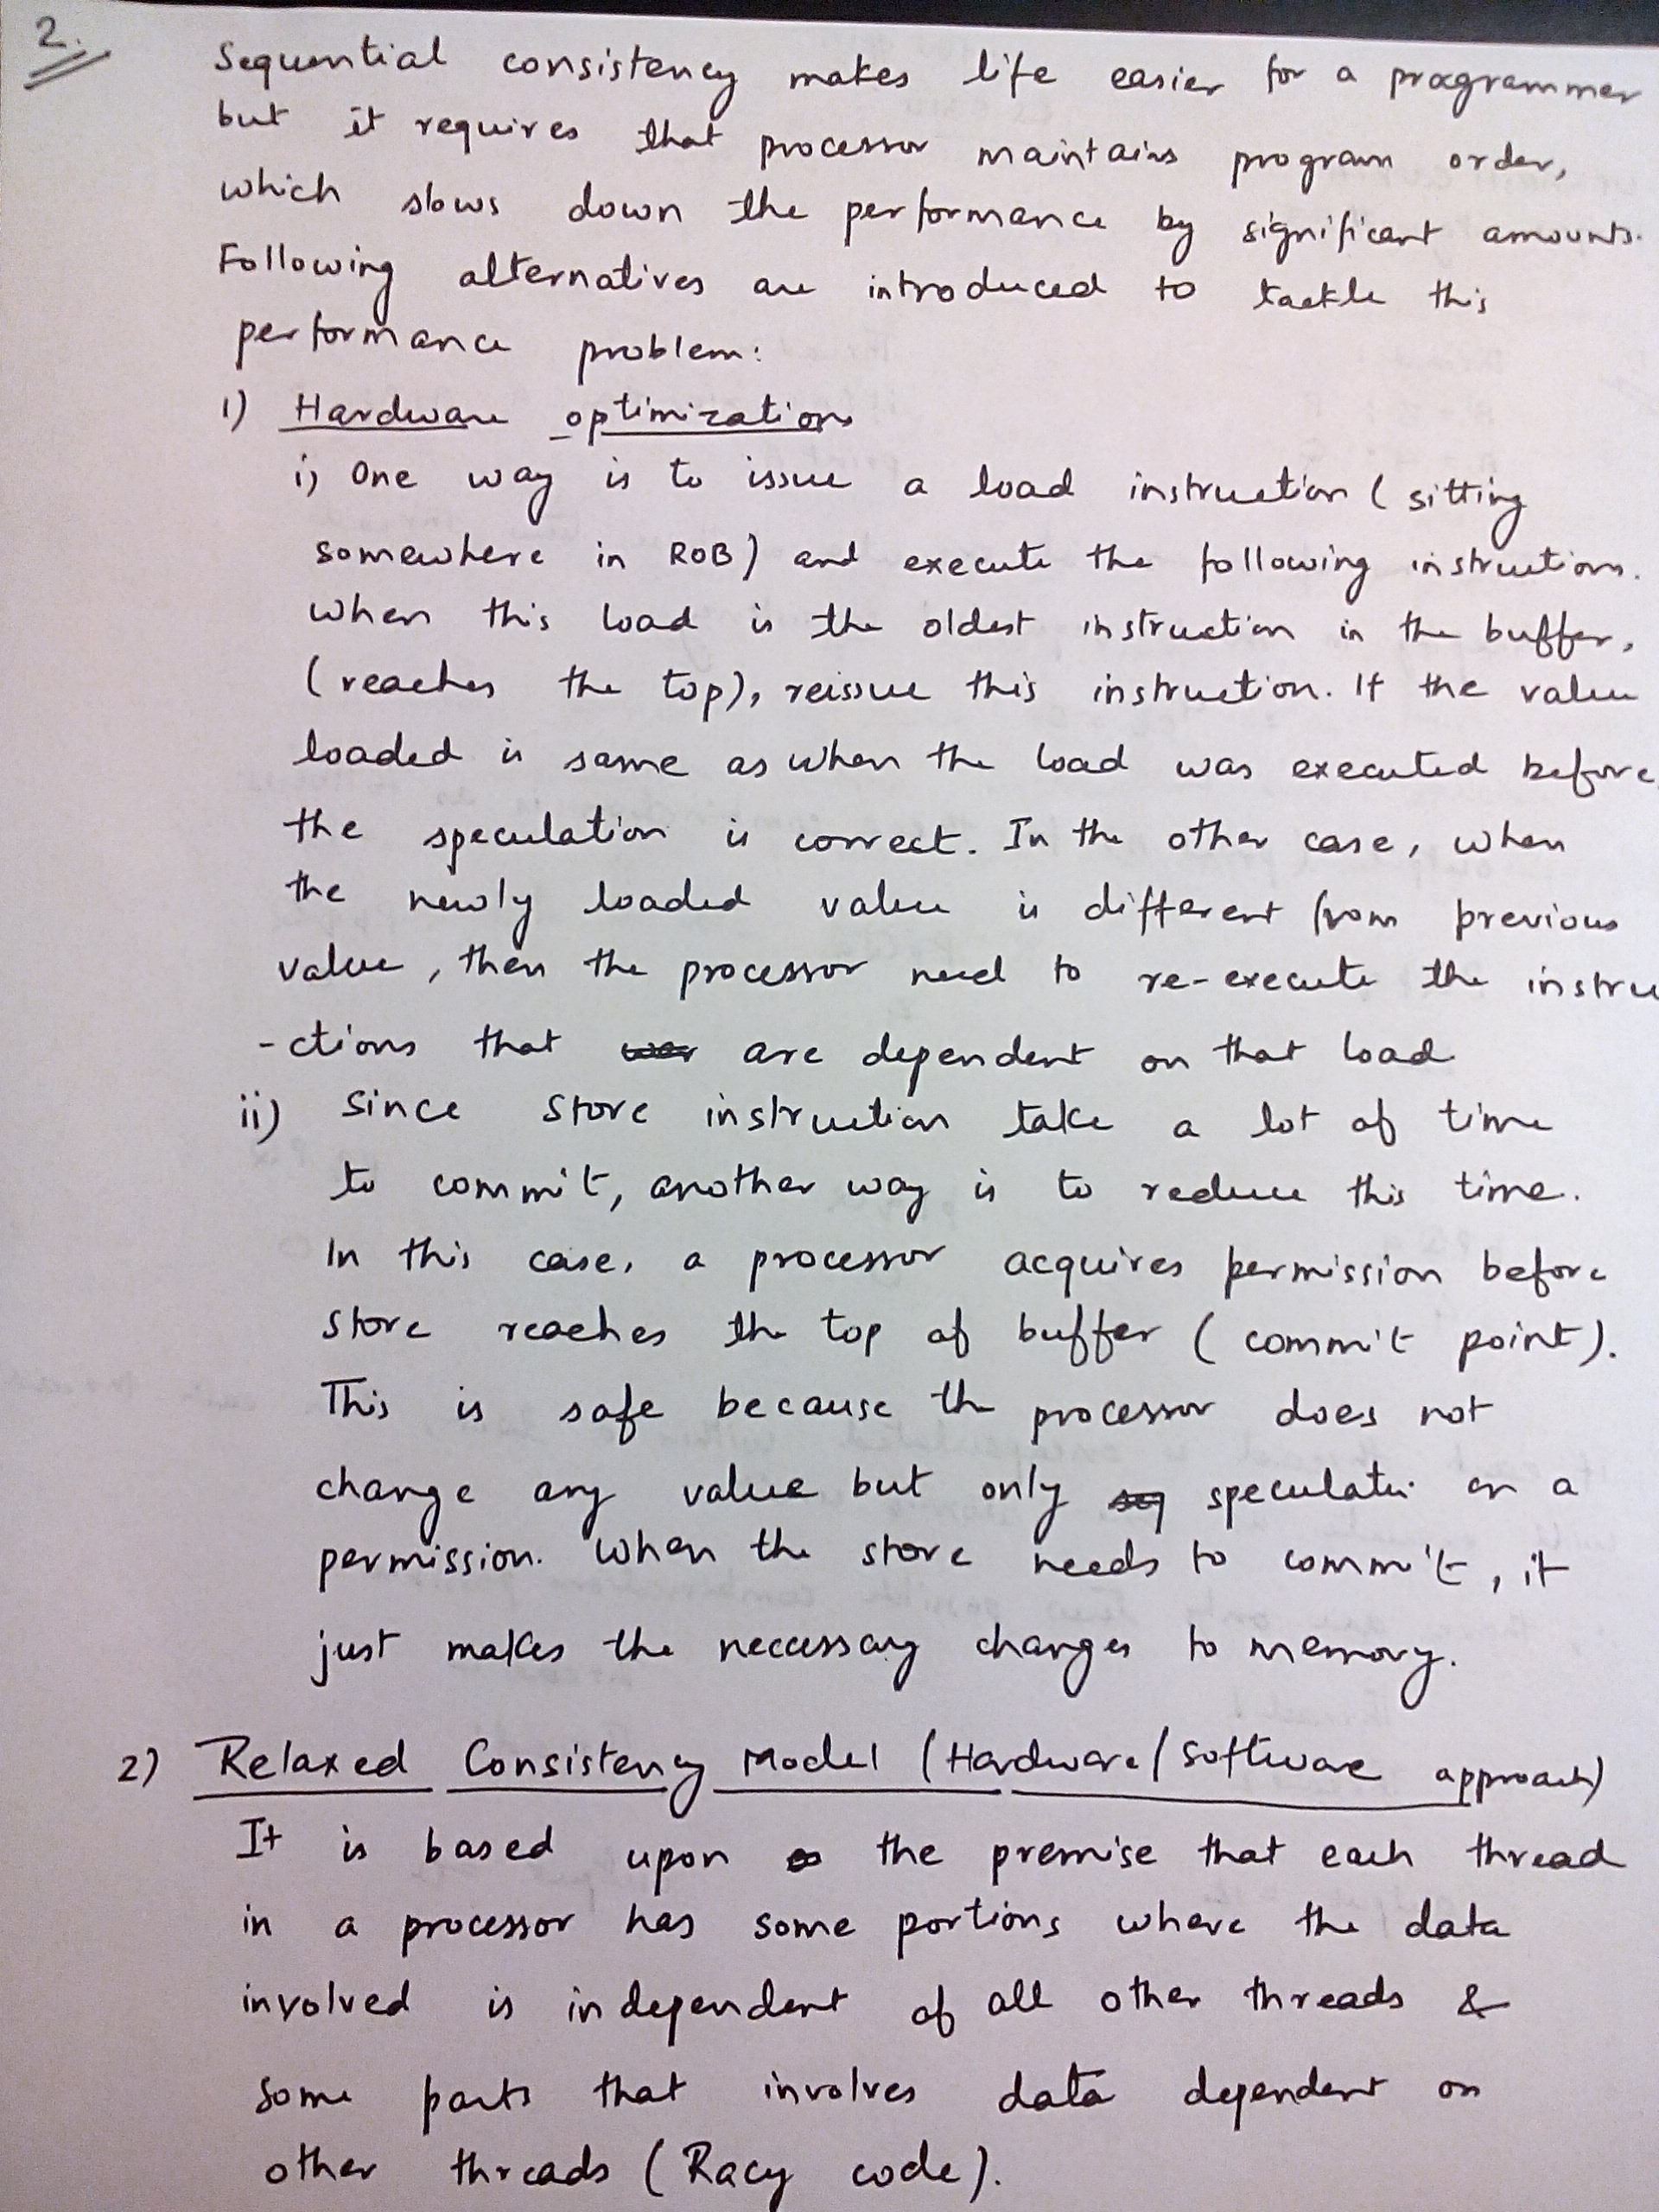 2.
Sequential consistency makes life easier for a programmer
but it requires that processor maintains program order,
which slows down the performance by significant amounts.
Following alternatives are introduced to tackle this
performance problem:
1) Hardware optimizations
i) One way is to issue a load instruction ( sitting
somewhere in ROB) and execute the following instructions.
When this load is the oldest instruction in the buffer,
(reaches the top), reissue this instruction. If the value
loaded is same as when the load was executed before,
the speculation is correct. In the other case, when
the newly loaded value is different from previous
value, then the processor need to re-execute the instru
-ctions that are dependent on that load
ii) Since store instruction take a lot of time
to commit, another way is to reduce this time.
In this case, a processor acquires permission before
store reaches the top of buffer ( commit point).
This is safe because the processor does not
change any value but only speculates on a
permission. When the store needs to commit, it
just makes the neccessary changes to memory.
2) Relaxed Consistency Model (Hardware/Software approach)
It is based upon the premise that each thread
in a processor has some portions where the data
involved is independent of all other threads &
some parts that involves data dependent on
other threads (Racy code).